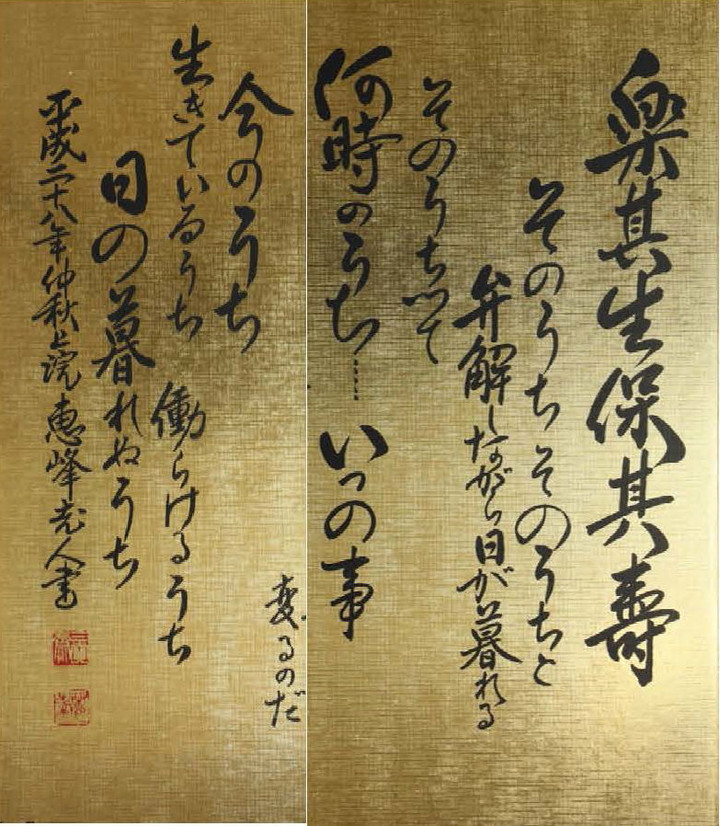 楽其生保其壽
そのうちそのうちと
弁解しながら日が暮れる
そのうちって
何時のうち……いつの事
変るのだ
今のうち
生きているうち 働らけるうち
日の暮れぬうち
平成二十八年仲秋上浣恵峰老人書